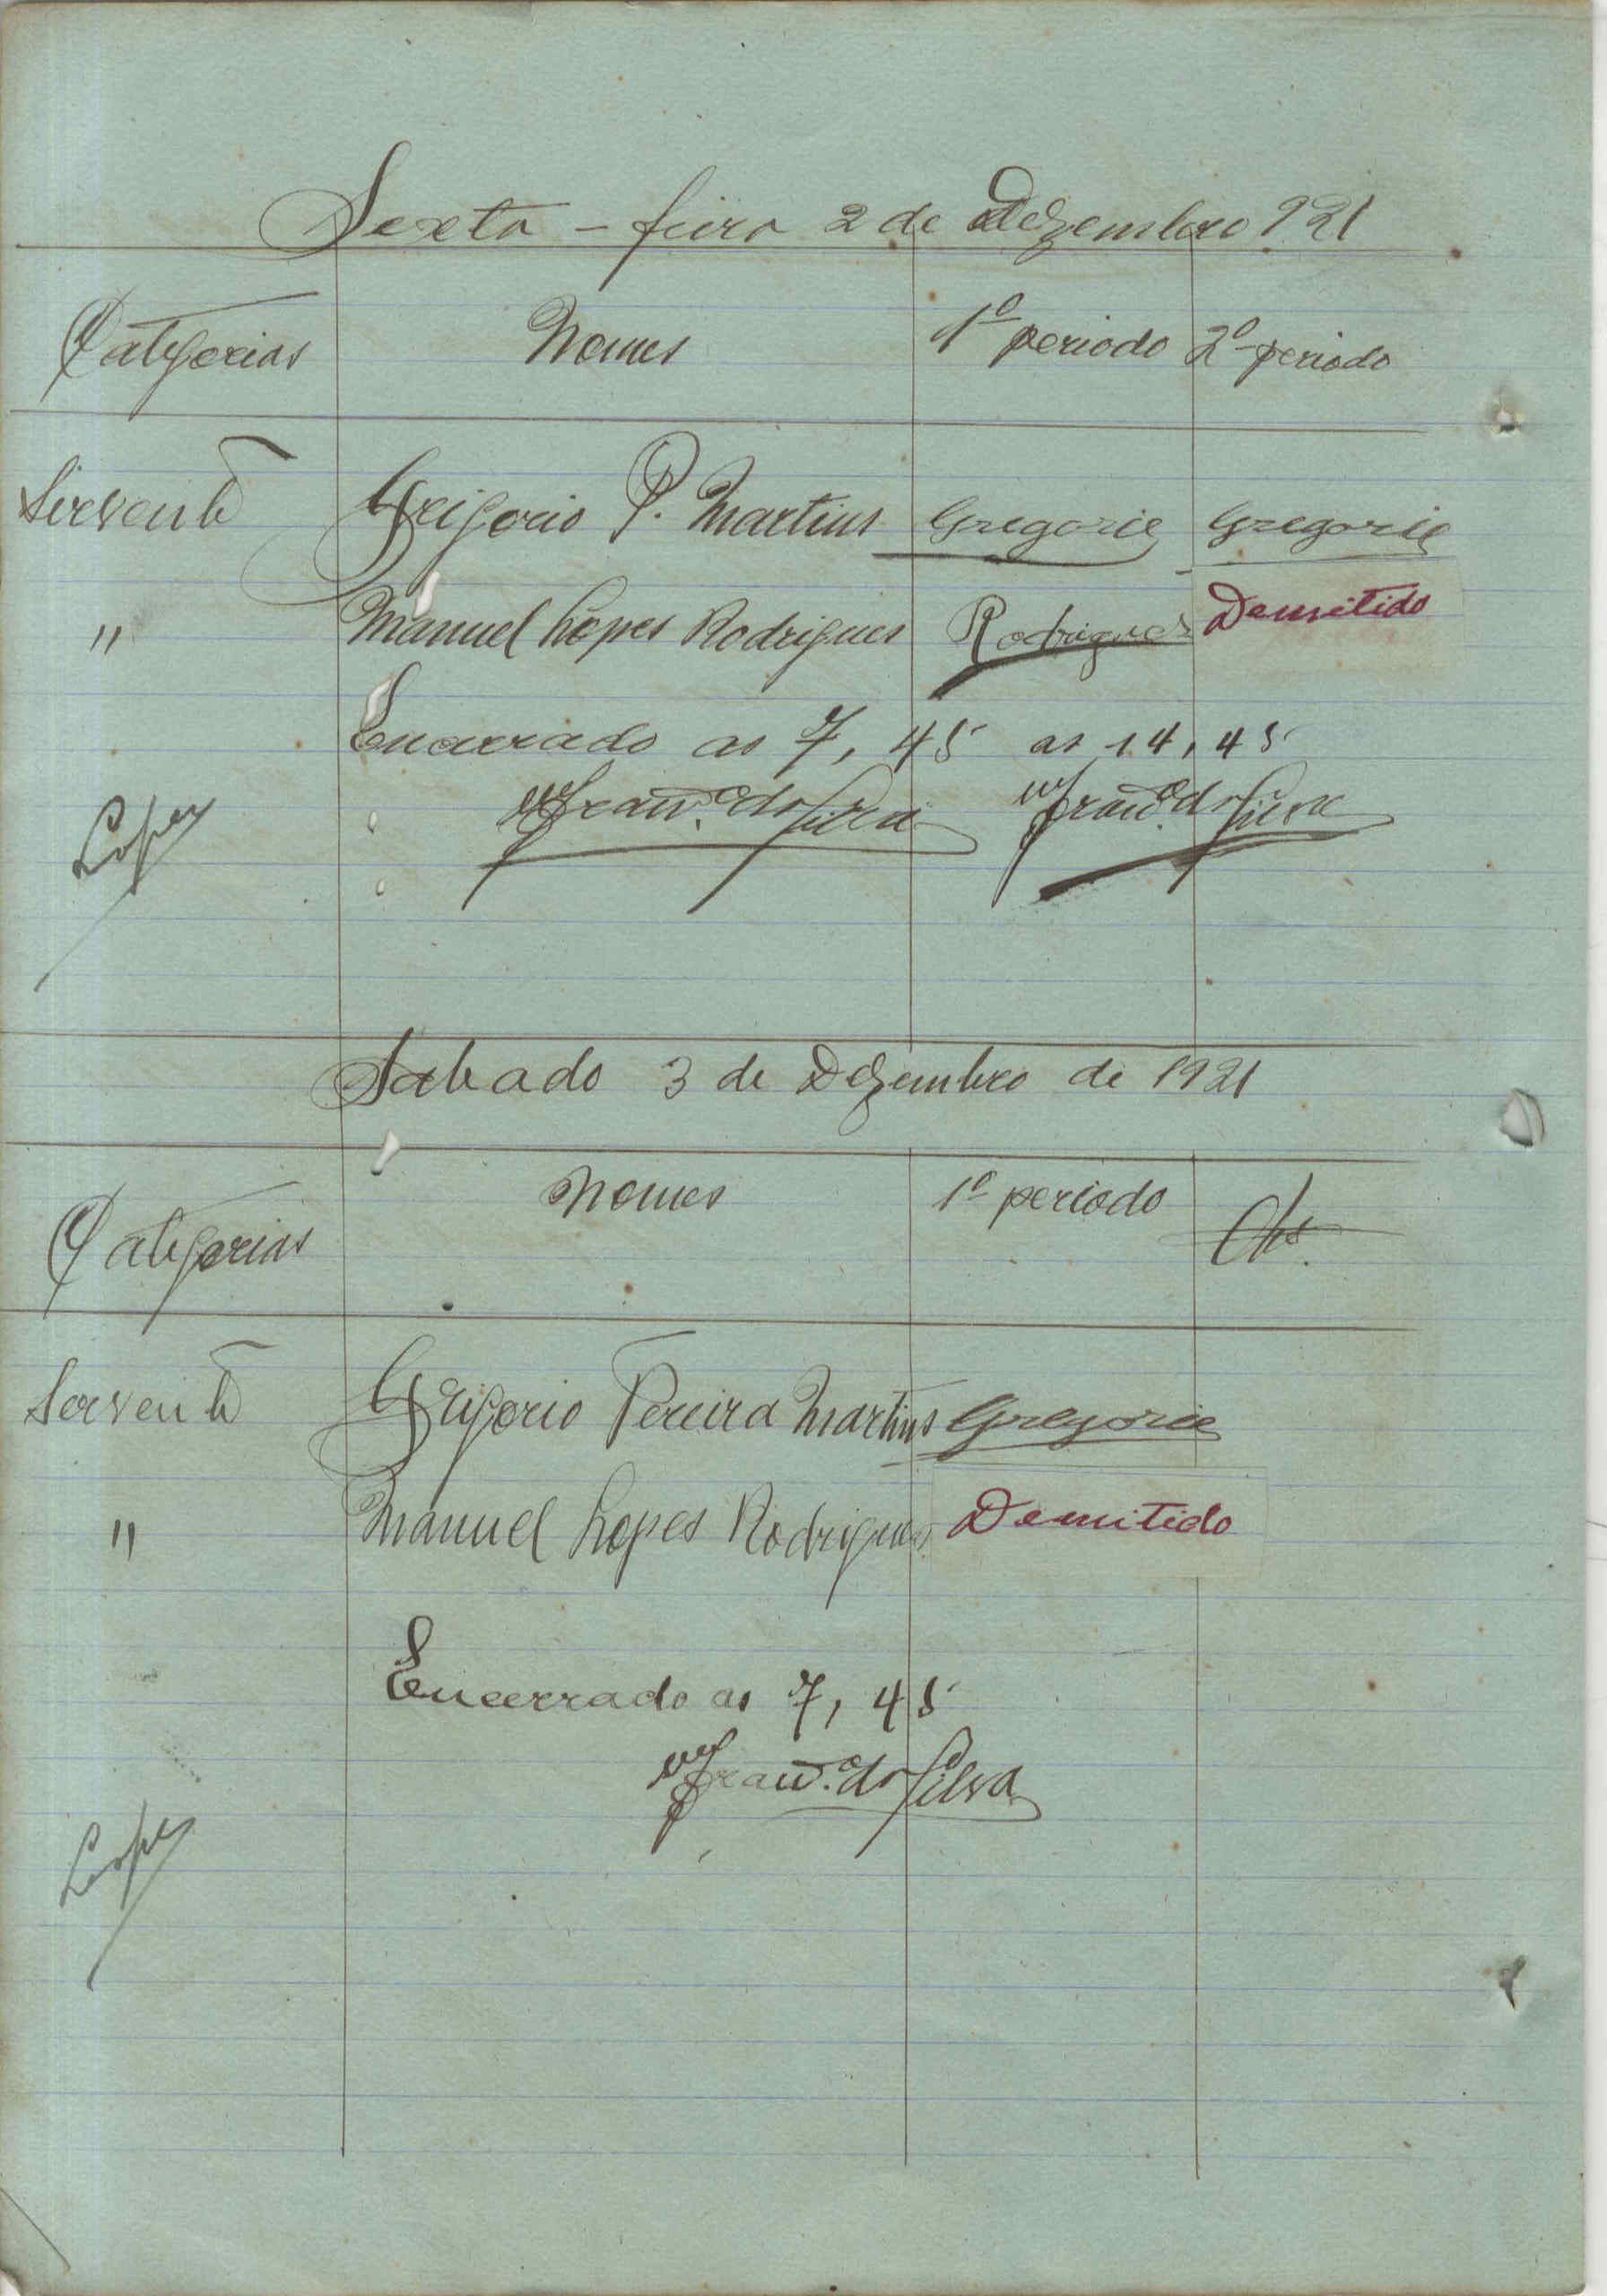 Sexta-feira 2 de Dezembro 921
Categorias Nomes 1º periodo 2º periodo
Servente Grigorio P. Martins Gregorio Gregorio
" Manuel Lopes Rodrigues Rodrigues Demitido
Encerrado as 7,45 as 14,45
Franco. da Silva Franco. da Silva
Lopes
Sabado 3 de Dezembro de 1921
Nomes 1º periodo Obs.
Categorias
Servente Grigorio Pereira Martins Gregorio
" Manuel Lopes Rodrigues Demitido
Encerrado as 7,45
Franco. da Silva
Lopes